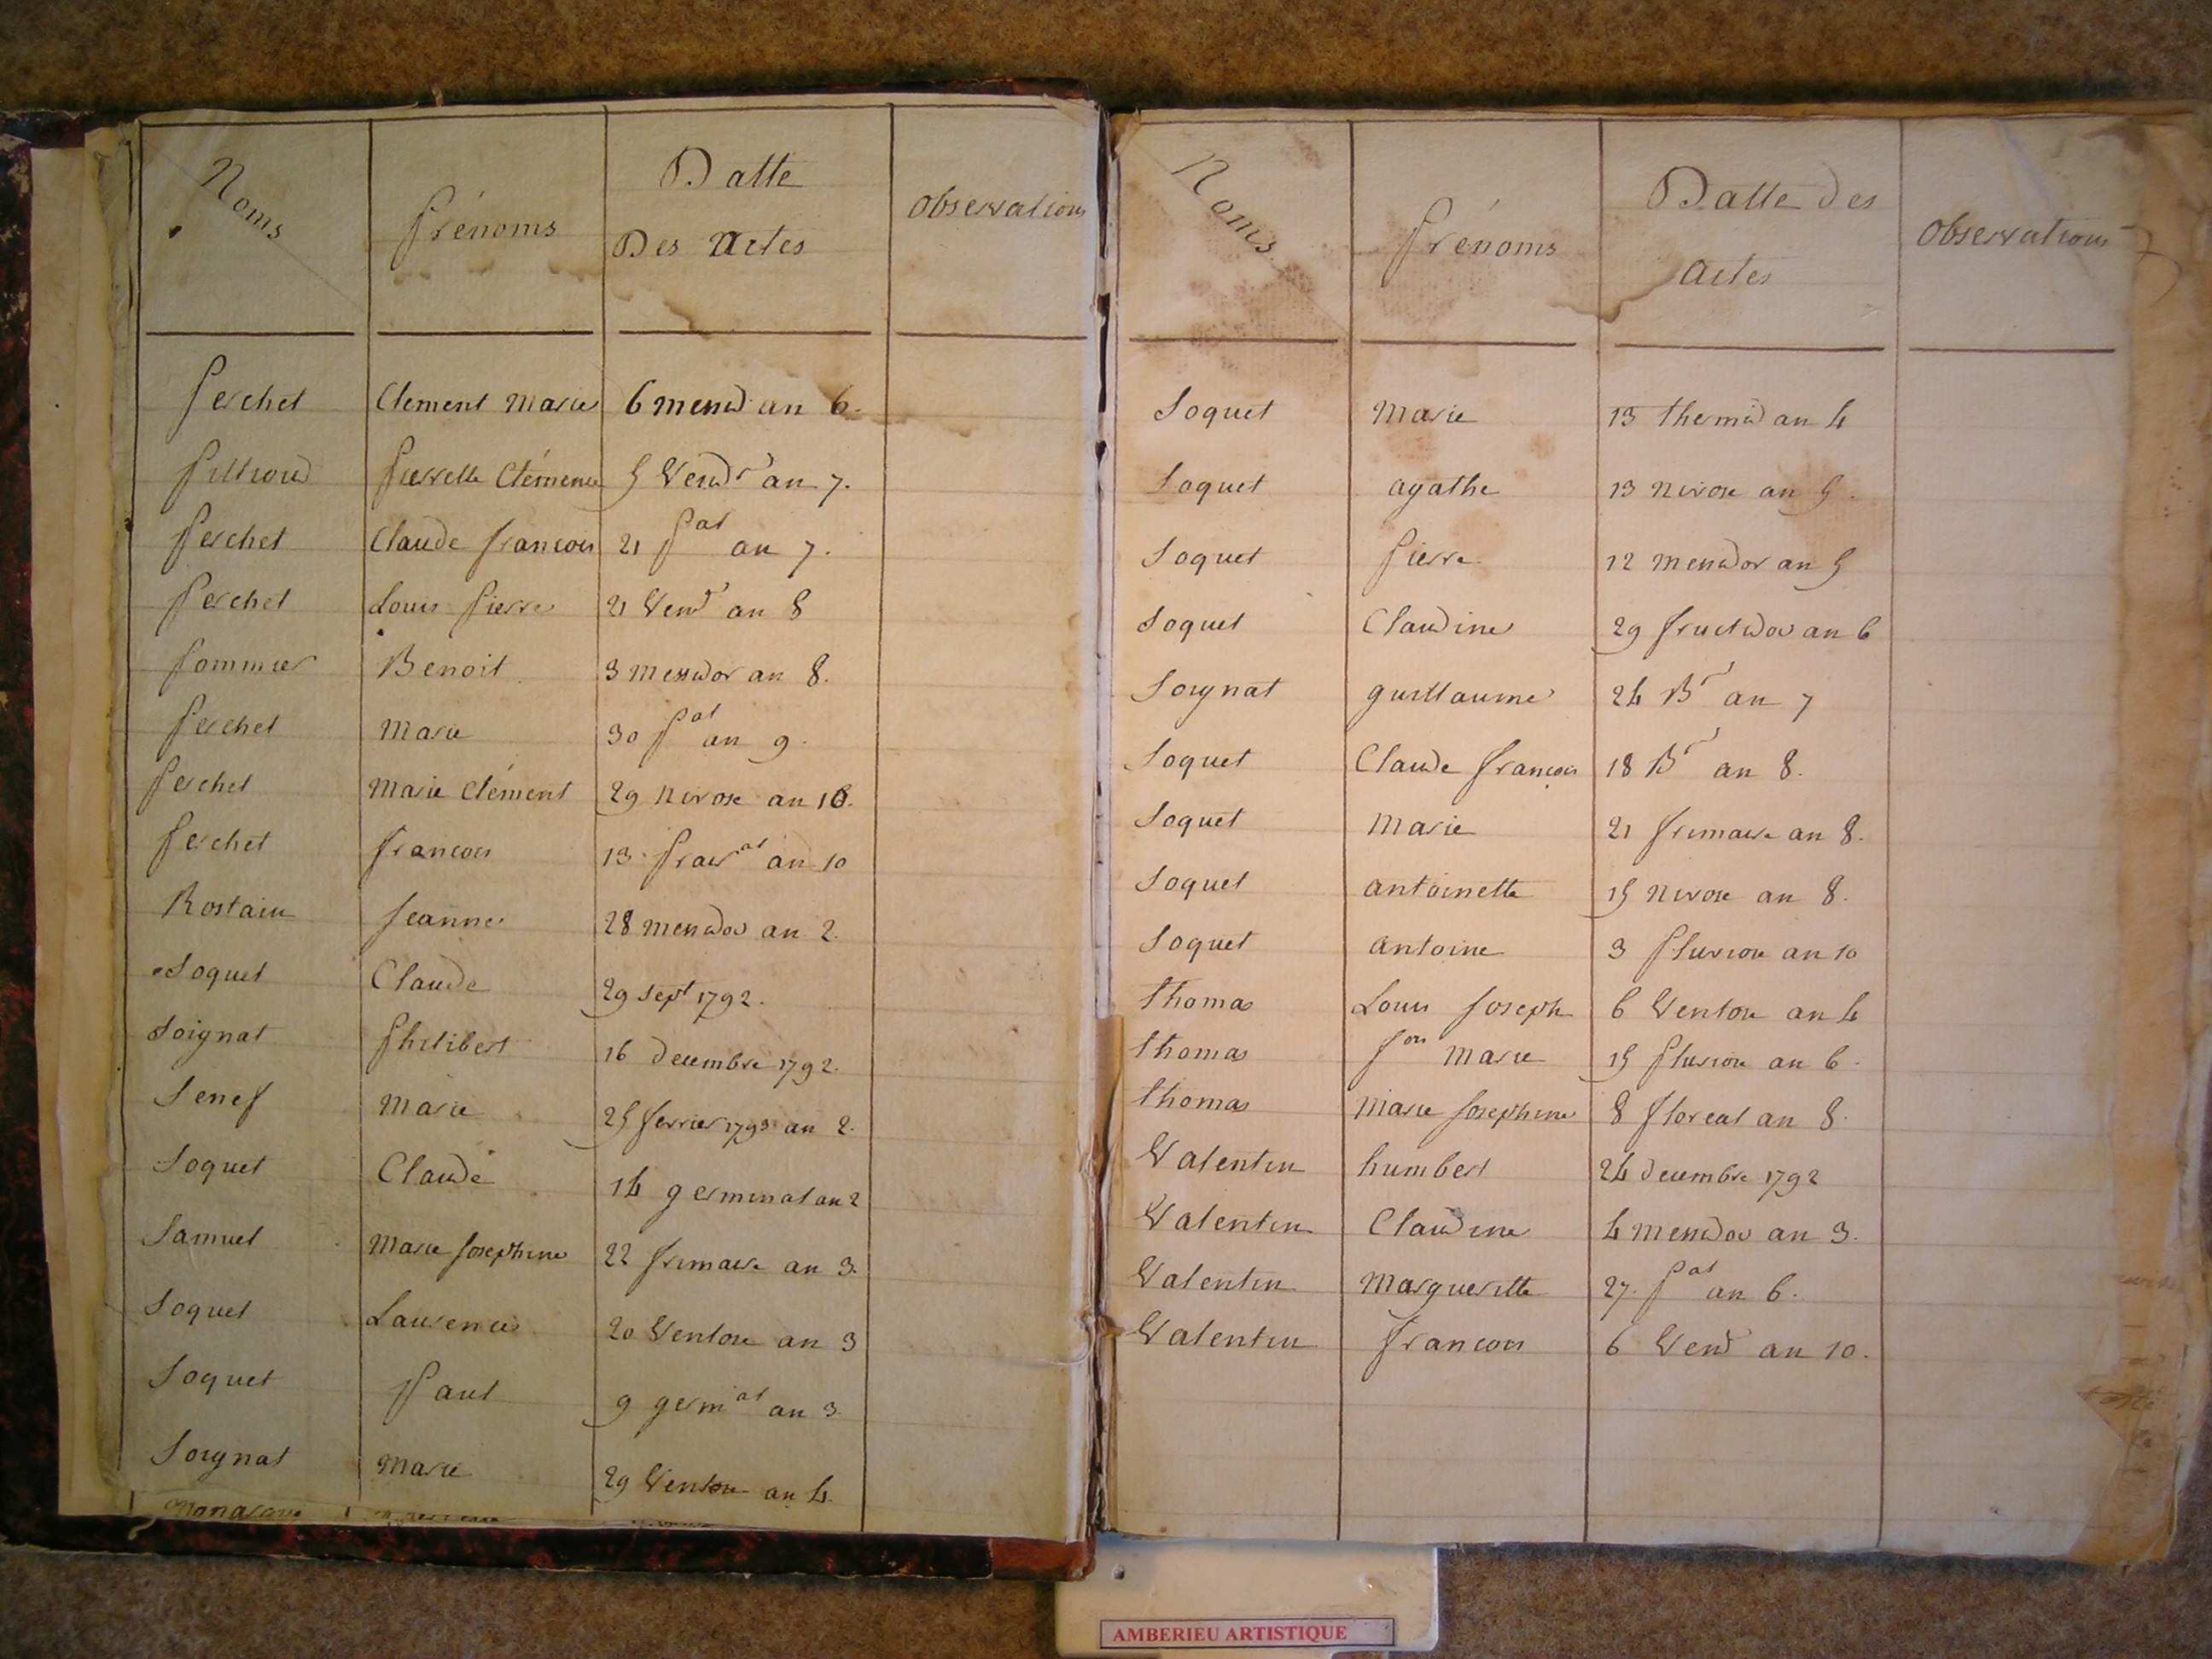 Noms Prénoms Datte Des Actes Observations
Perchet Clement Marie 6 messid an 6.
Pittioud Pierrette Clémence 5 Vendr an 7.
Perchet Claude francois 21 Pal an 7.
Perchet Louis Pierre 21 Vendr an 8
Pommier Benoit 3 messidor an 8.
Perchet Marie 30 Pal an 9.
Perchet Marie Clément 29 Nivose an 10.
Perchet francois 13 prairal an 10
Rostain Jeanne 28 messidor an 2.
Soquet Claude 29 sept 1792.
Soignat Philibert 16 decembre 1792.
Senef Marie 25 fevrier 1793 an 2.
Soquet Claude 14 germinal an 2
Samuel Marie Josephine 22 frimaire an 3.
Soquet Laurence 20 Ventose an 3
Soquet Paul 9 germal an 3.
Soignat Marie 29 Ventose an 4.
Noms Prénoms Datte des Actes Observations
Soquet Marie 13 thermid an 4
Soquet agathe 13 Nivose an 5.
Soquet Pierre 12 messidor an 5
Soquet Claudine 29 fructidor an 6
Soignat guillaume 24 Br an 7
Soquet Claude francois 18 Br an 8.
Soquet Marie 21 frimaire an 8.
Soquet antoinette 15 Nivose an 8.
Soquet antoine 3 Pluviose an 10
thomas Louis Joseph 6 Ventose an 4
thomas Marie 15 Pluviose an 6.
thomas Marie Josephine 8 floreal an 8.
Valentin humbert 24 decembre 1792
Valentin Claudine 4 messidor an 3.
Valentin Margueritte 27. Pal an 6.
Valentin francois 6 Vend an 10.
AMBERIEU ARTISTIQUE